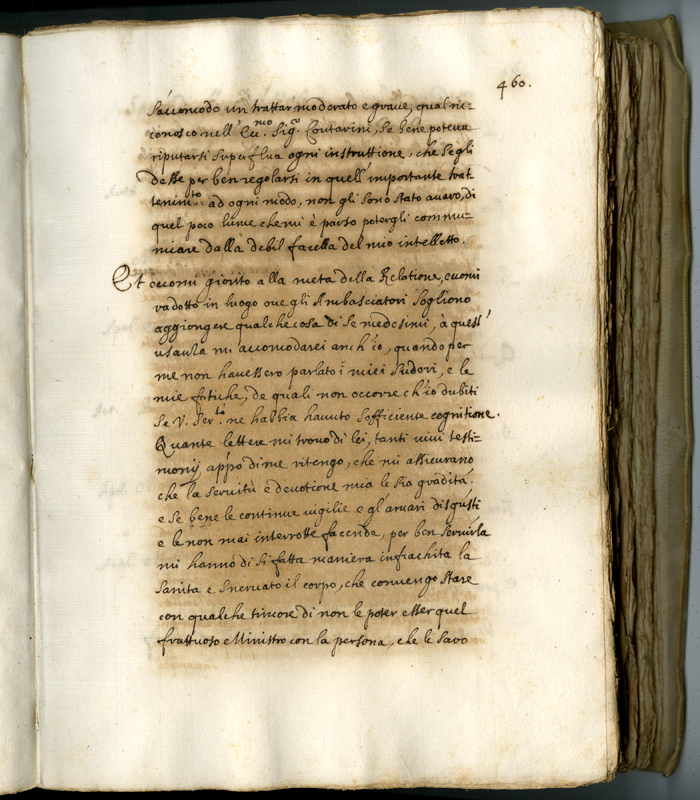 460.
s'accomodo un trattar moderato e grave, qual ri-
conosco nell' Ecc.mo Sig.r Contarini, se bene poteva
riputarsi superflua ogni instruttione, che se gli
desse per ben regolarsi in quell' importante trat
tenim.to ad ogni modo, non gli sono stato avaro, di
quel poco lume che mi è parso potergli commu-
nicare dalla debil facella del mio intelletto.
Et eccomi gionto alla meta della Relatione, eccomi
ridotto in luogo oue gli Ambasciatori sogliono
aggiongere qualche cosa di se medesimi, à quest'
usanza mi accomodarei anch'io, quando per
me non havessero parlato i miei sudori, e le
mie fatiche, de quali non occorre ch'io dubiti
se V. Ser.tà ne habbia havuto sofficiente cognitione.
Quante lettere mi trovo di lei, tanti vivi testi-
monij app.o di me ritengo, che mi assicurano
che la servitù e devotione mia le sia gradita.
e se bene le continue vigilie e gl'amari disgusti
e le non mai interrotte facende, per ben servirla
mi hanno di si fatta maniera infiachita la
sanita e snervato il corpo, che convengo stare
con qualche timore di non le poter esser quel
fruttuoso Ministro con la persona, che le sarò